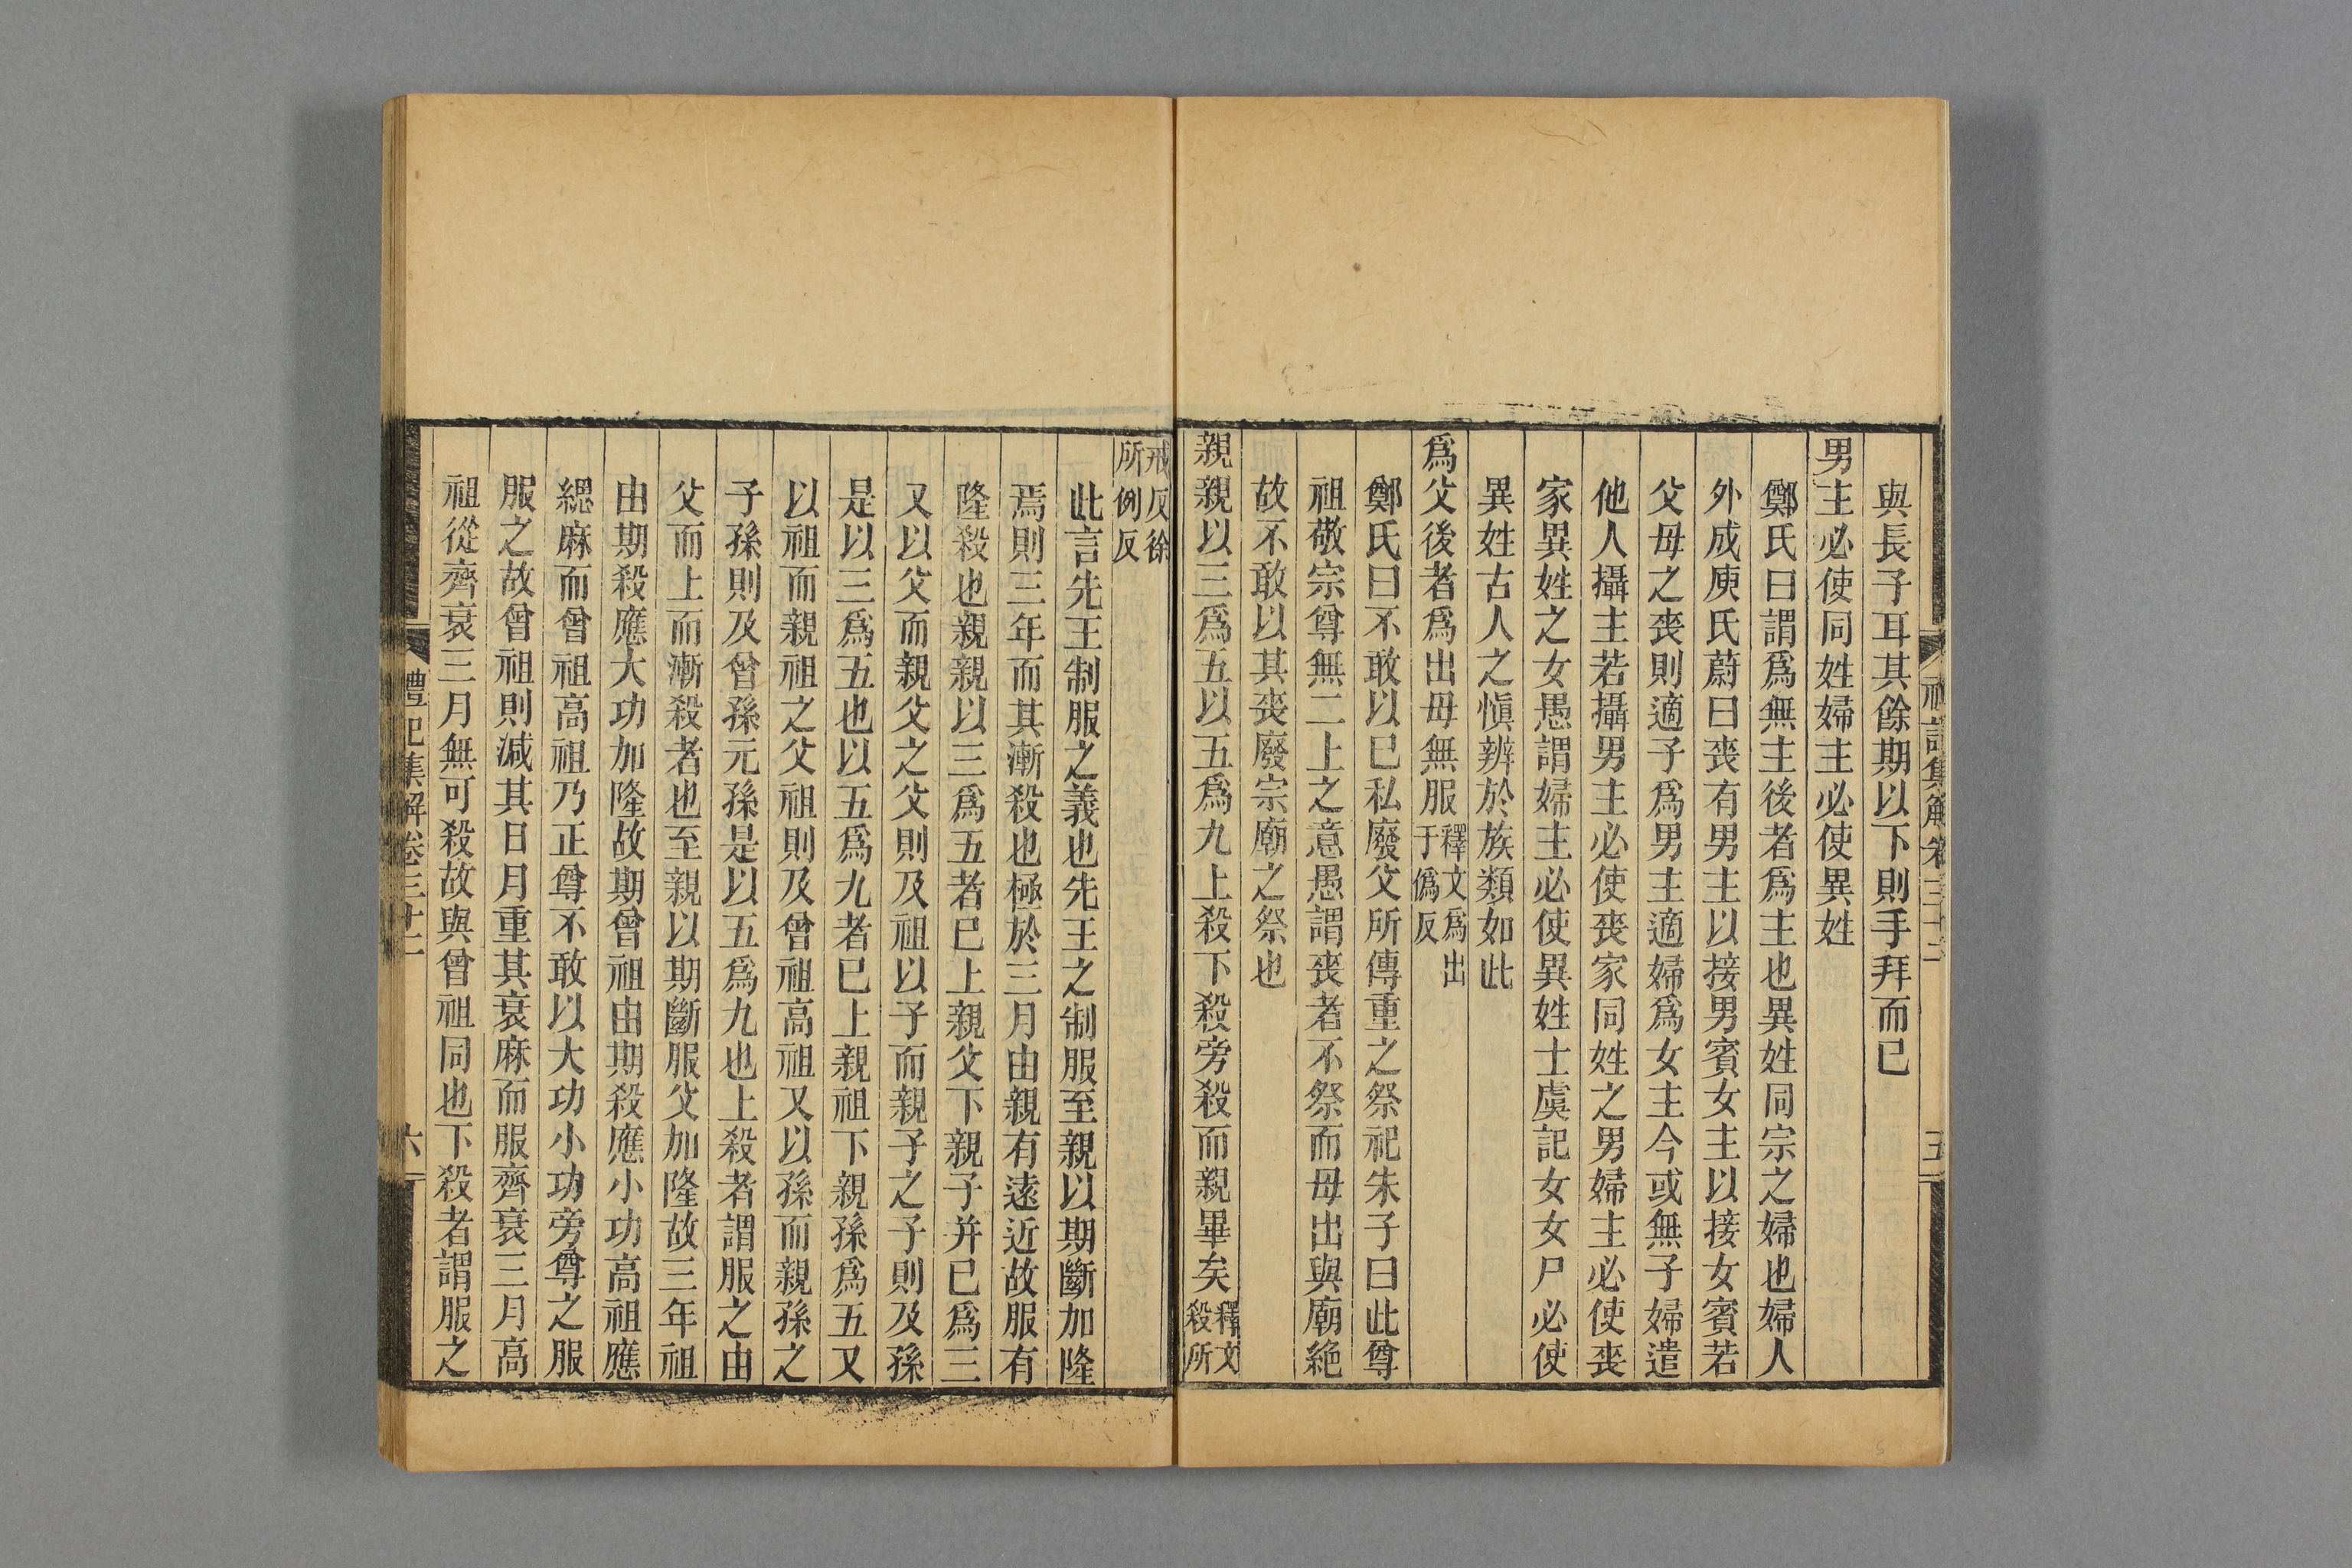 禮記集解卷三十二
五
與長子耳其餘期以下則手拜而已
男主必使同姓婦主必使異姓
鄭氏曰謂爲無主後者爲主也異姓同宗之婦也婦人
外成庾氏蔚曰喪有男主以接男賓女主以接女賓若
父母之喪則適子爲男主適婦爲女主今或無子婦遣
他人攝主若攝男主必使喪家同姓之男婦主必使喪
家異姓之女愚謂婦主必使異姓士虞記女女尸必使
異姓古人之愼辨於族類如此
爲父後者爲出母無服釋文爲出于僞反
鄭氏曰不敢以已私廢父所傳重之祭祀朱子曰此尊
祖敬宗尊無二上之意愚謂喪者不祭而母出與廟絶
故不敢以其喪廢宗廟之祭也
親親以三爲五以五爲九上殺下殺旁殺而親畢矣釋文殺所
戒反徐所例反
此言先王制服之義也先王之制服至親以期斷加隆
焉則三年而其漸殺也極於三月由親有遠近故服有
隆殺也親親以三爲五者已上親父下親子并已爲三
又以父而親父之父則及祖以子而親子之子則及孫
是以三爲五也以五爲九者已上親祖下親孫爲五又
以祖而親祖之父祖則及曾祖高祖又以孫而親孫之
子孫則及曾孫元孫是以五爲九也上殺者謂服之由
父而上而漸殺者也至親以期斷服父加隆故三年祖
由期殺應大功加隆故期曾祖由期殺應小功高祖應
緦麻而曾祖高祖乃正尊不敢以大功小功旁尊之服
服之故曾祖則減其日月重其衰麻而服齊衰三月高
祖從齊衰三月無可殺故與曾祖同也下殺者謂服之
禮記集解卷三十二
六